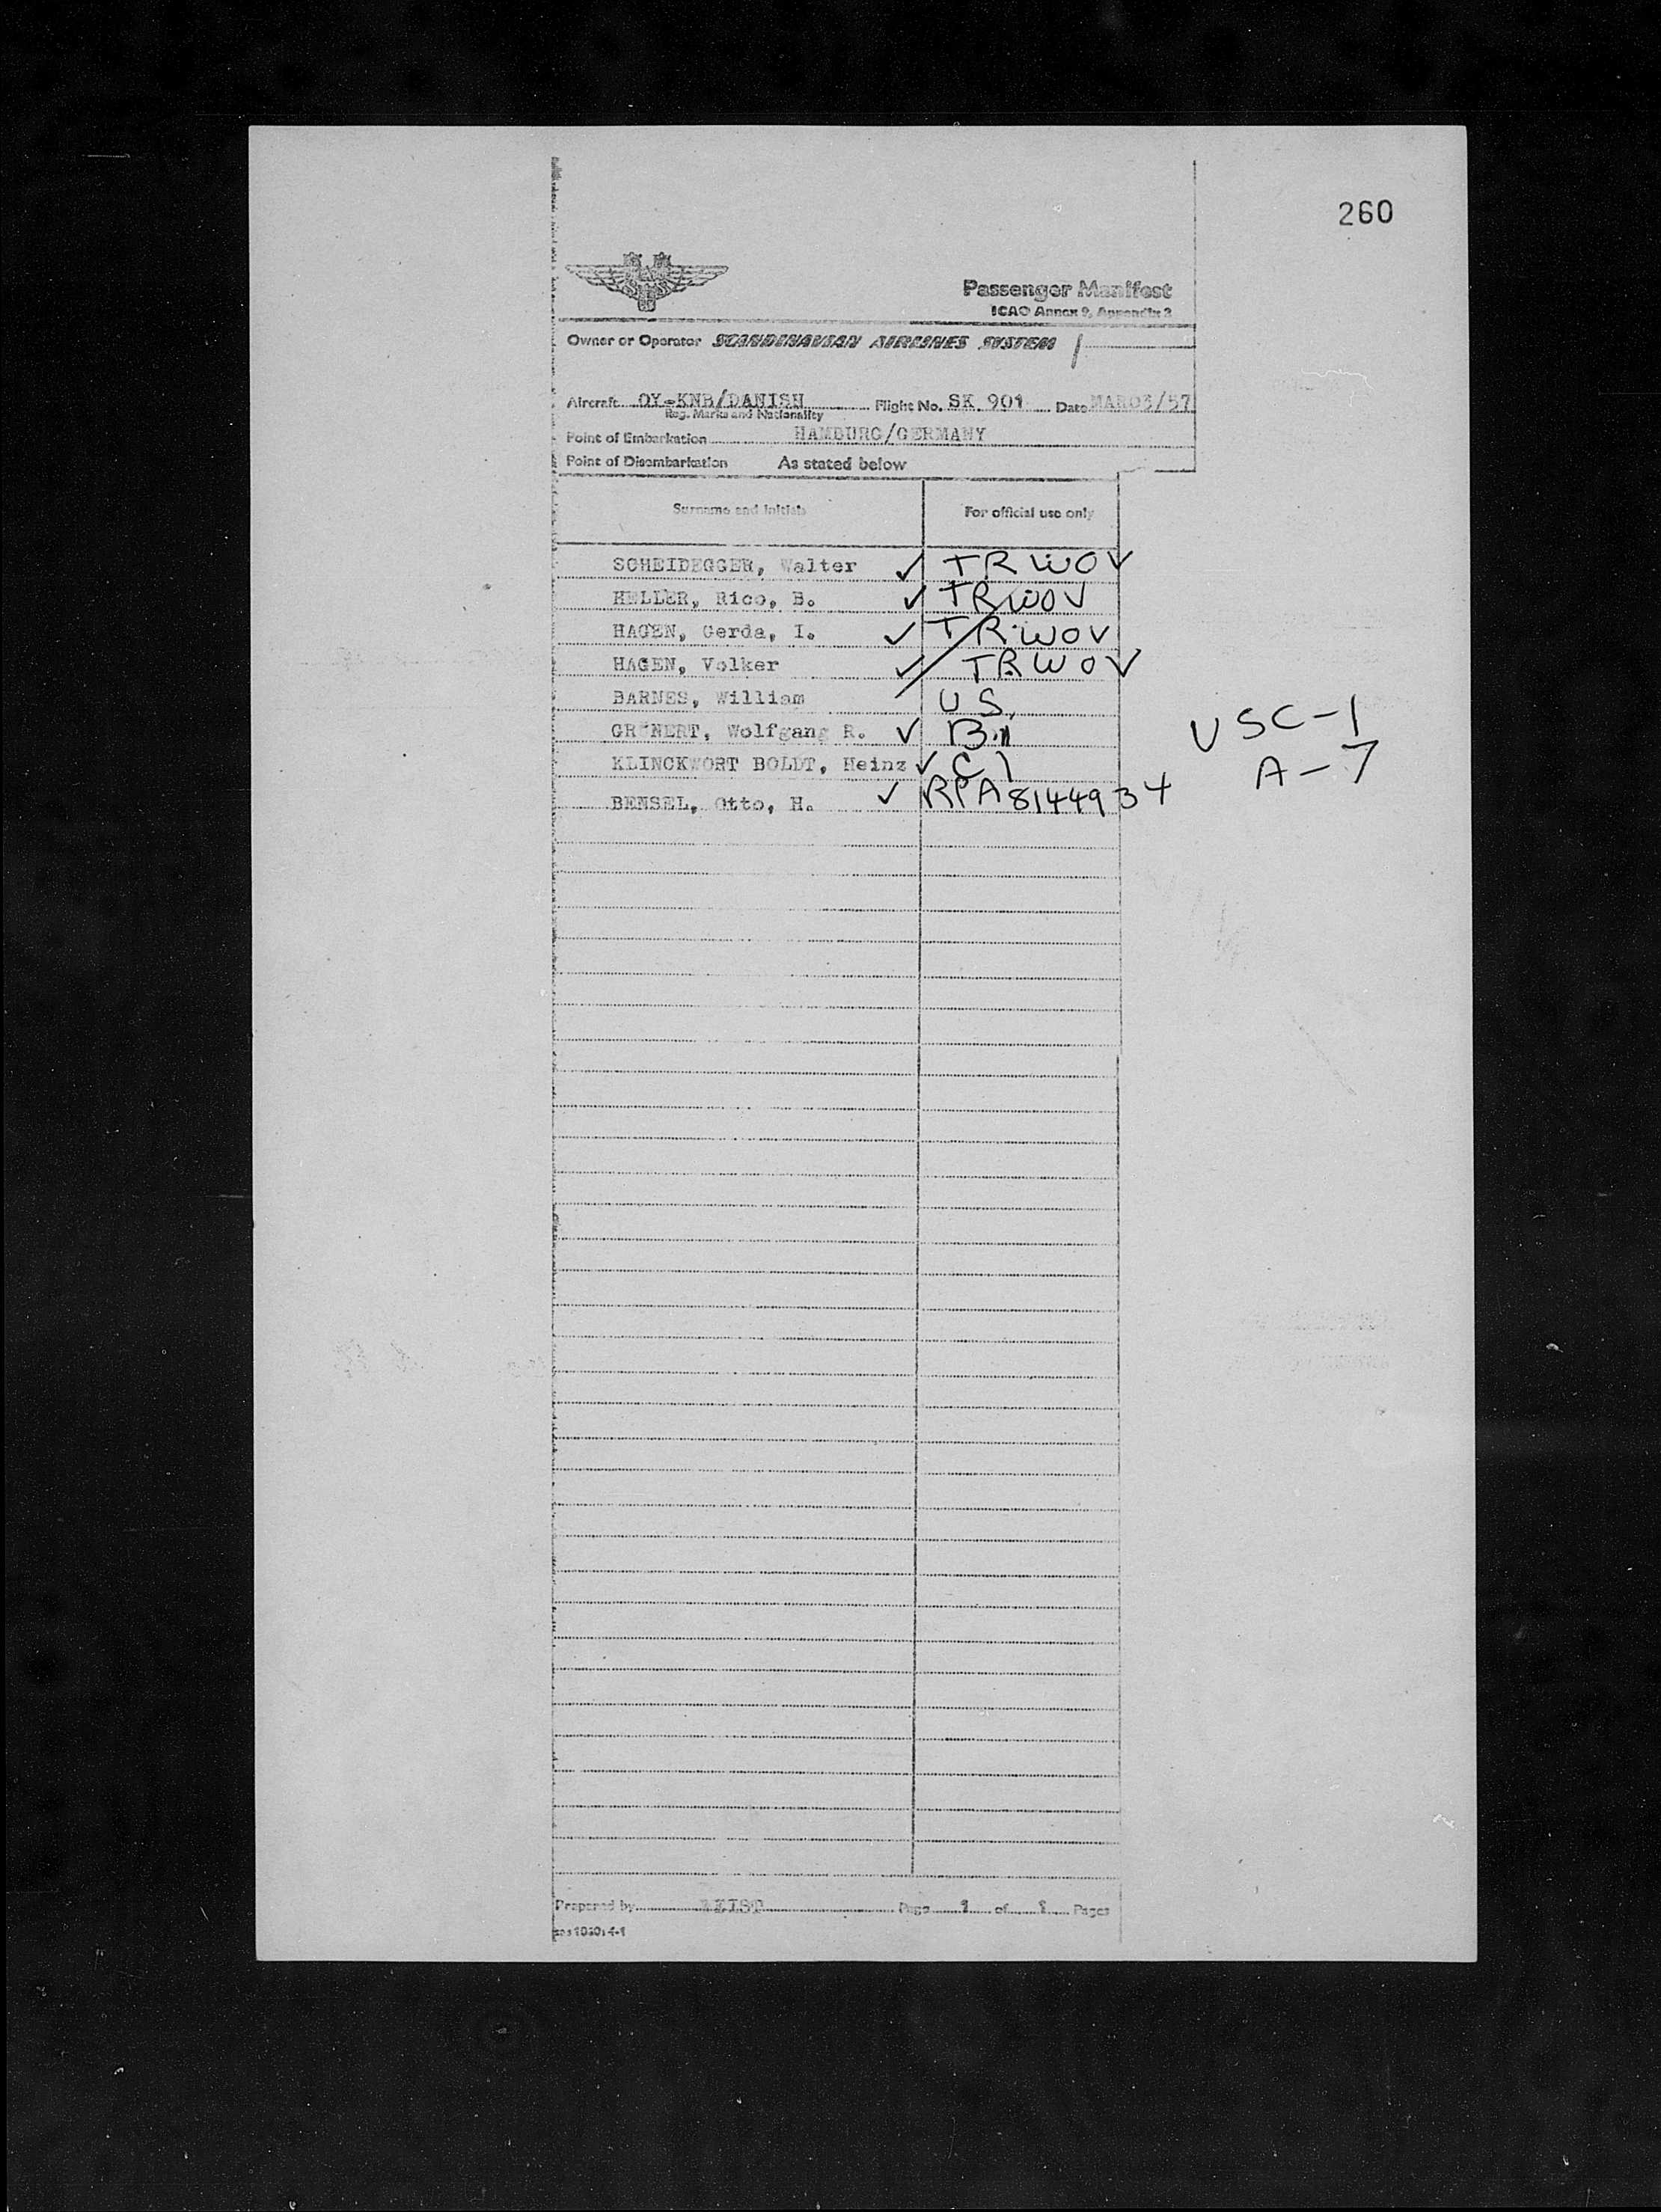 260
Passenger Manifest
ICAO Annex 9, Appendix 2
Owner or Operator SCANDINAVIAN AIRLINES SYSTEM
Aircraft OY-KNB/DANISH Flight No. SK 901 Date MAR03/57
Reg. Marks and Nationality
Point of Embarkation HAMBURG/GERMANY
Point of Disembarkation As stated below
Surname and Initials For official use only
SCHEIDEGGER, Walter ✓ TRWOV
HELLER, Rico, B. ✓ TRWOV
HAGEN, Gerda, I. ✓ TRWOV
HAGEN, Volker ✓ TRWOV
BARNES, William US.
GRÜNERT, Wolfgang R. ✓ B.1 USC-1
KLINCKWORT BOLDT, Heinz ✓ C1 A-7
BENSEL, Otto, H. ✓ RPA8144934
Prepared by Page 1 of 1 Pages